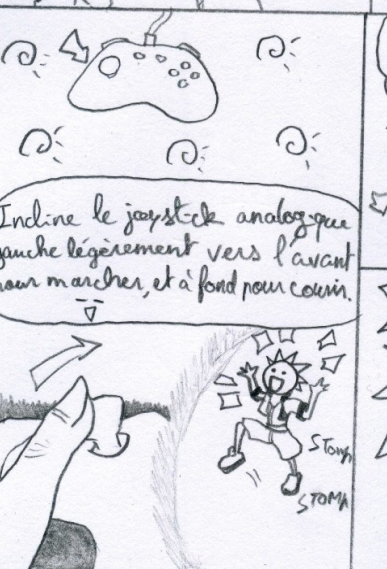 Incline le joystick analogique
gauche légèrement vers l'avant
pour marcher, et à fond pour courir.
STOMP
STOMP